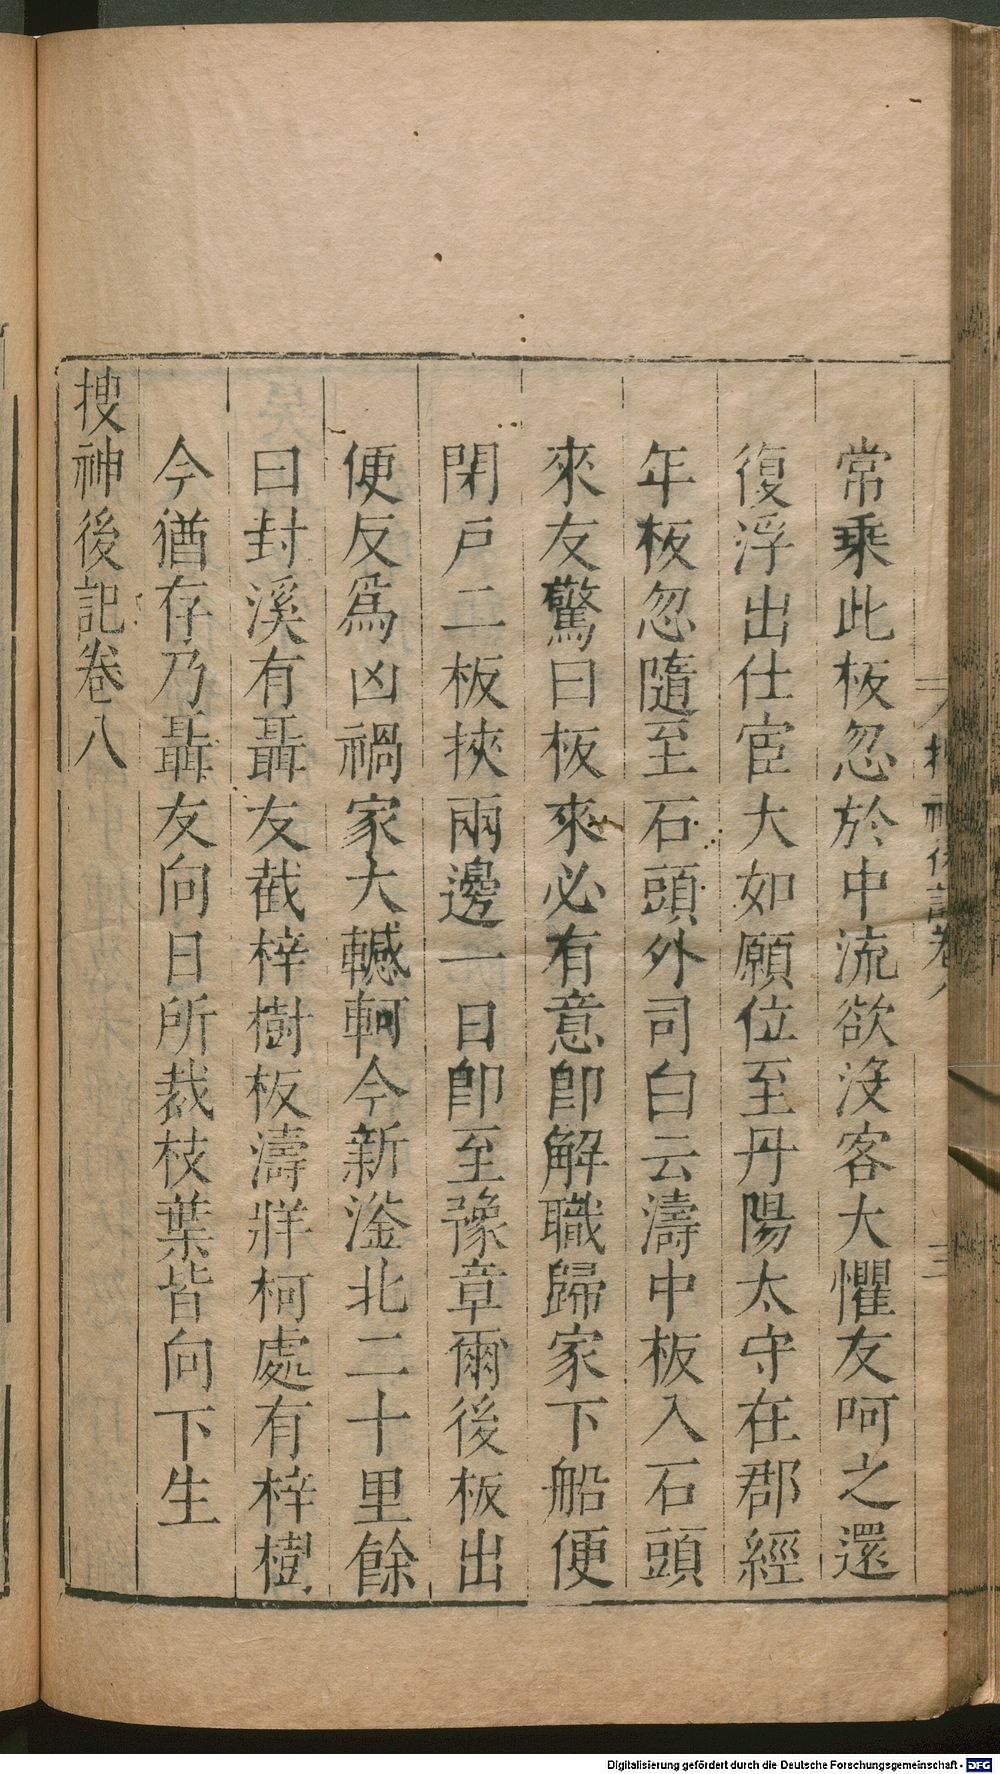 常乘此板忽於中流欲沒客大懼友呵之還
復浮出仕宦大如願位至丹陽太守在郡經
年板忽隨至石頭外司白云濤中板入石頭
來友驚曰板來必有意卽解職歸家下船便
閉戶二板挾兩邊一日卽至豫章爾後板出
便反爲凶禍家大轗軻今新淦北二十里餘
曰封溪有聶友截梓樹板濤牂柯處有梓樹
今猶存乃聶友向日所裁枝葉皆向下生
搜神後記卷八
Digitalisierung gefördert durch die Deutsche Forschungsgemeinschaft - DFG